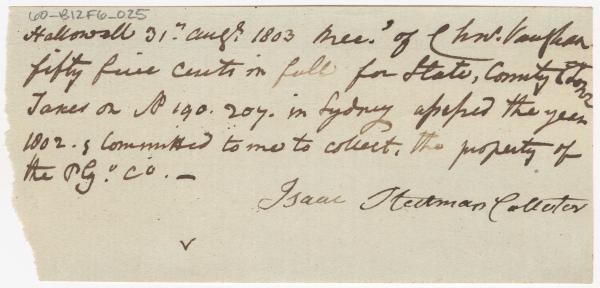 60-B12F6-025
Hallowell 31st augt. 1803 Recd. of Chas. Vaughan
fifty five cents in full for State, County & Town
Taxes on No 190. 207. in Sydney assessed the year
1802. & Committed to me to collect, the property of
the Plyo. Co. —
Isaac Stedman Collector